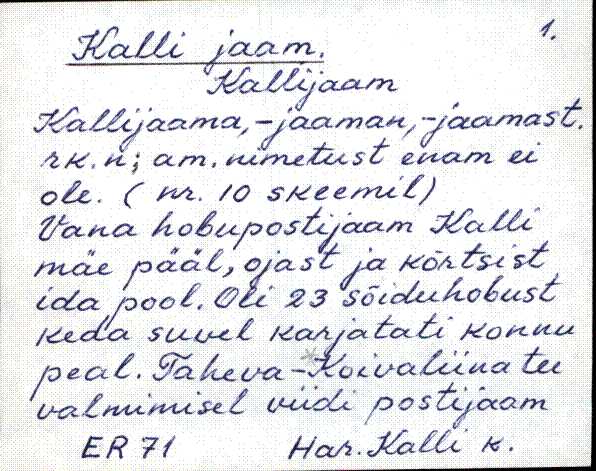 1.
Kalli jaam.
Kallijaam
Kallijaama, -jaaman, -jaamast.
rk. n; am. nimetust enam ei
ole. ( nr. 10 skeemil)
Vana hobupostijaam Kalli
mäe pääl, ojast ja kõrtsist
ida pool. Oli 23 sõiduhobust
keda suvel karjatati konnu
peal. Taheva-Koivaliina tee
valmimisel viidi postijaam
ER 71 Har. Kalli k.